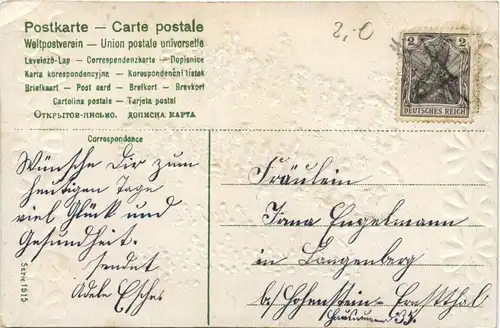 Postkarte — Carte postale
Weltpostverein — Union postale universelle
Levelező-Lap — Correspondenzkarte — Dopisnice
Karta korespondencyjna — Korespondenční lístek
Briefkaart — Post card — Brefkort — Brevkort
Cartolina postale — Tarjeta postal
Открытое-письмо. Дописна карта
2,-
2 2
DEUTSCHES REICH
Correspondence
Wünsche Dir zum
heutigen Tage
viel Glück und
Gesundheit.
sendet
Adele
Serie 1615
Fräulein
Jrna Engelmann
in Langenberg
b/ Hohenstein-Ernstthal
Hausnummer 35.